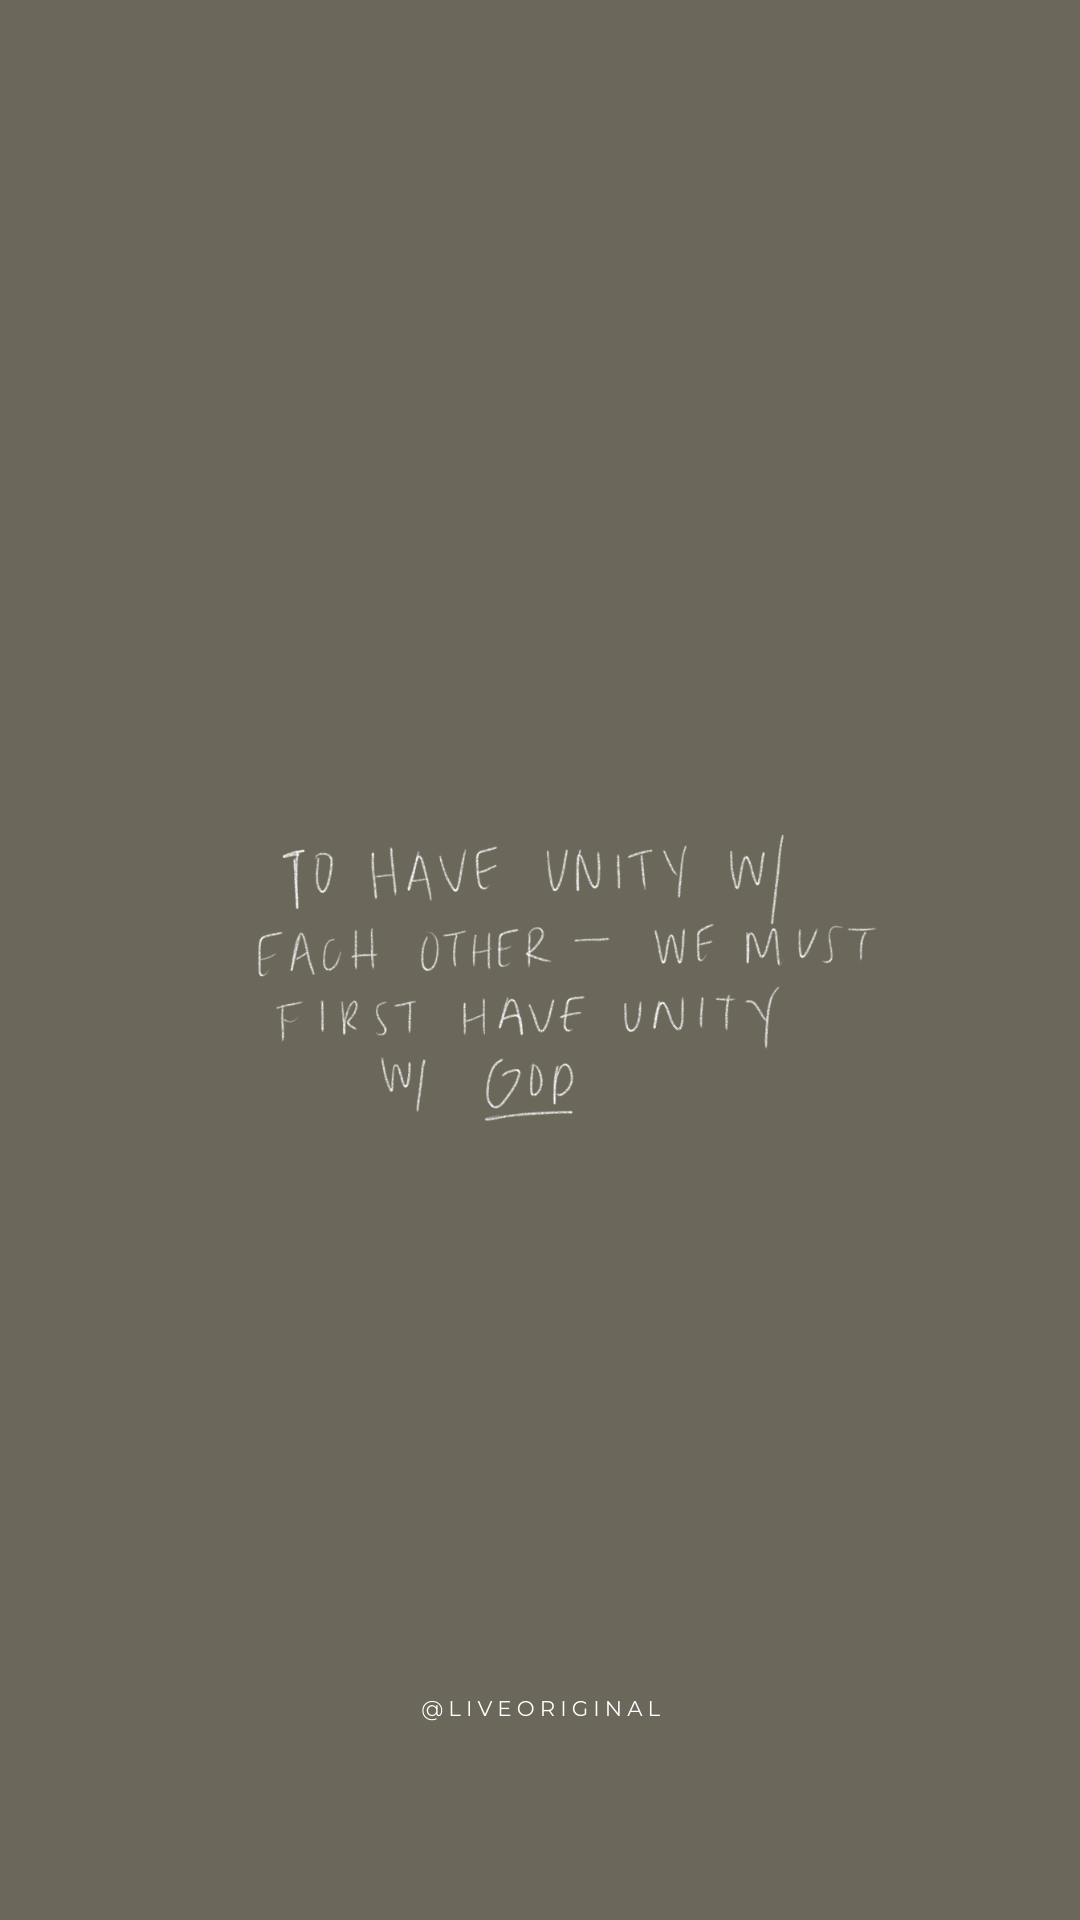 TO HAVE UNITY W/
EACH OTHER — WE MUST
FIRST HAVE UNITY
W/ GOD
@LIVEORIGINAL